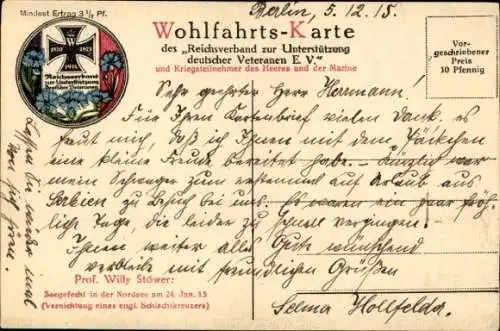 Mindest Ertrag 3 1/3 Pf.
Berlin, 5.12.15.
Wohlfahrts-Karte
des „Reichsverband zur Unterstützung
deutscher Veteranen E. V."
und Kriegsteilnehmer des Heeres und der Marine
Vor-
geschriebener
Preis
10 Pfennig
W
1870
1871
1914
Reichsverband
zur Unterstützung
deutscher Veteranen
Sehr geehrter Herr Herrmann!
Für Ihren Kartenbrief vielen Dank. es
freut mich, daß ich Ihnen mit dem Päckchen
eine kleine Freude bereitet habe. Kürzlich war
mein Schwager zum erstenmal auf Urlaub aus
Serbien zu Besuch bei uns. Es waren ein paar fröh-
liche Tage, die leider zu schnell vergingen.
Ihnen weiter alles Gute wünschend
verbleibe mit freundlichen Grüßen
Selma Hollfelda.
Lassen Sie wieder mal
von sich hören.
Prof. Willy Stöwer:
Seegefecht in der Nordsee am 24. Jan. 15
(Vernichtung eines engl. Schlachtkreuzers)